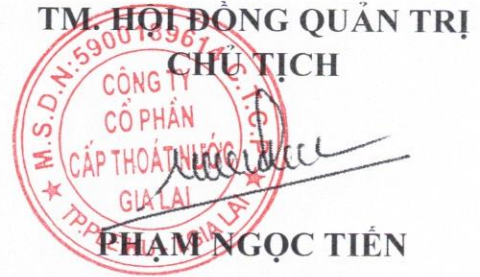 TM. HỘI ĐỒNG QUẢN TRỊ
CHỦ TỊCH
M.S.D.N:5900189614-C.T.C.P
CÔNG TY
CỔ PHẦN
CẤP THOÁT NƯỚC
GIA LAI
GIA LAI
PHẠM NGỌC TIẾN